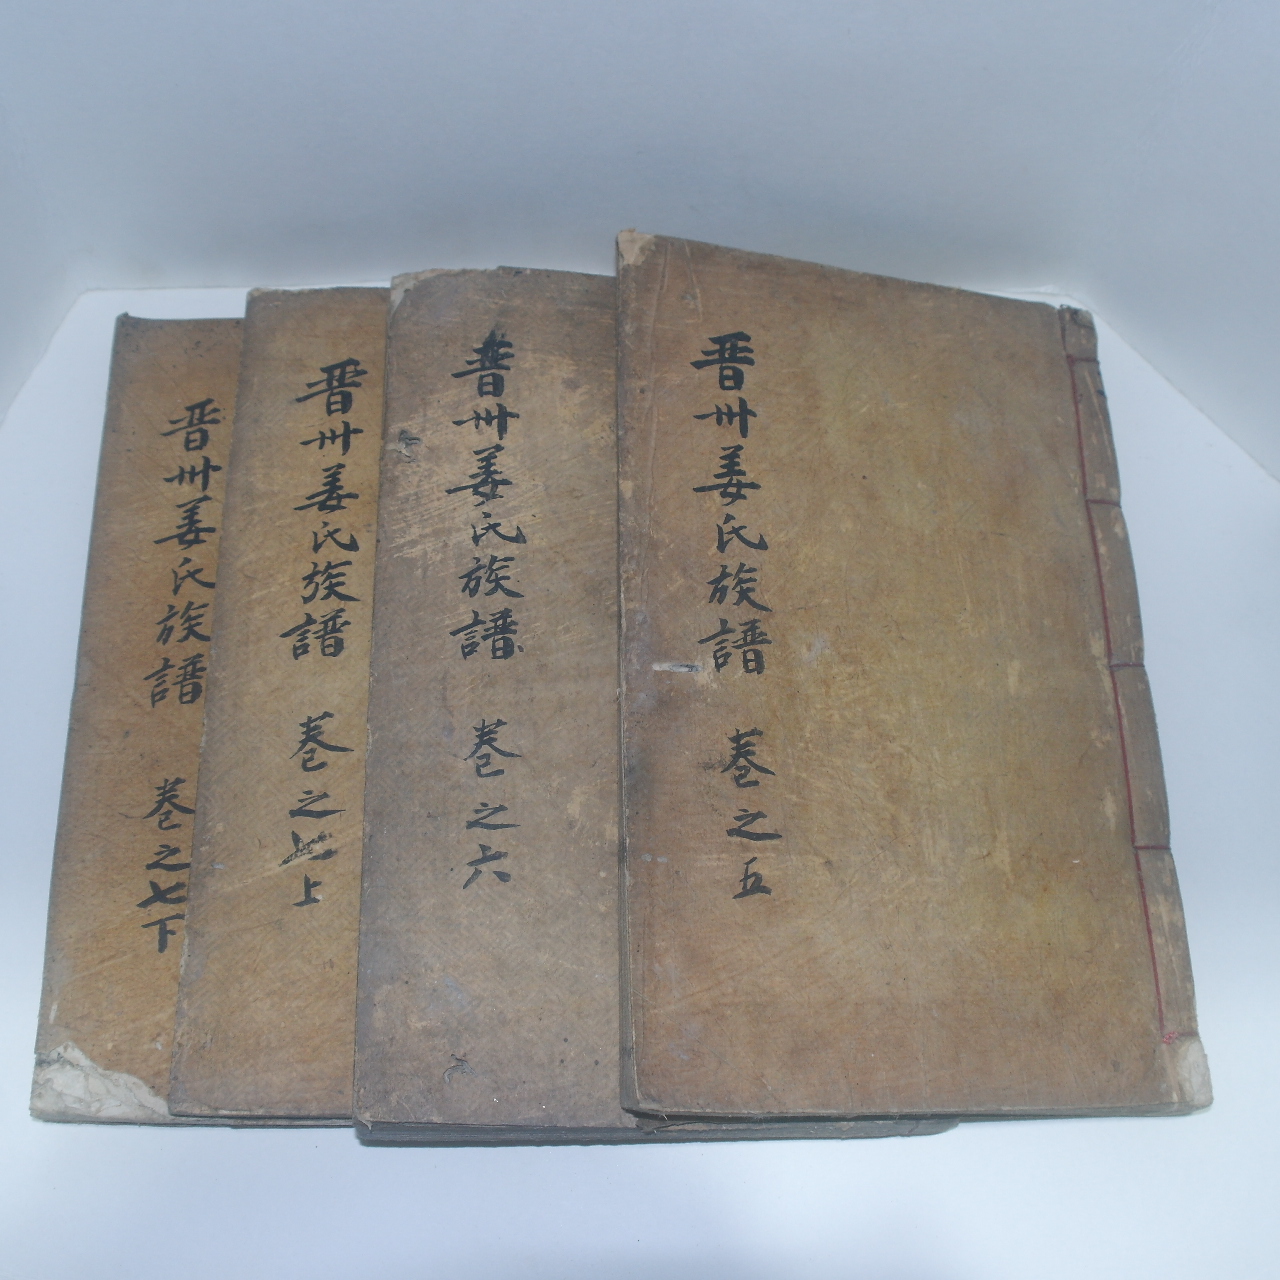 晋州姜氏族譜 巻之五
晋州姜氏族譜 巻之六
晋州姜氏族譜 巻之七上
晋州姜氏族譜 巻之七下